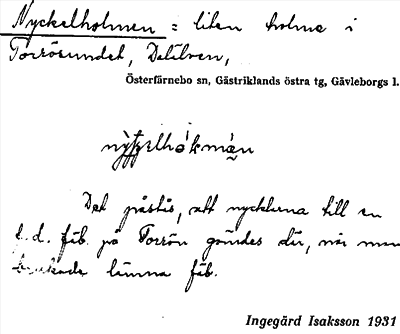 Nyckelholmen = liten holme i
Torrösundet, Dalälven,
Österfärnebo sn, Gästriklands östra tg, Gävleborgs l.
Det påstås, att nycklarna till en
f. d. fäb. på Torrön gömdes där, när man
brukade lämna fäb.
Ingegärd Isaksson 1931